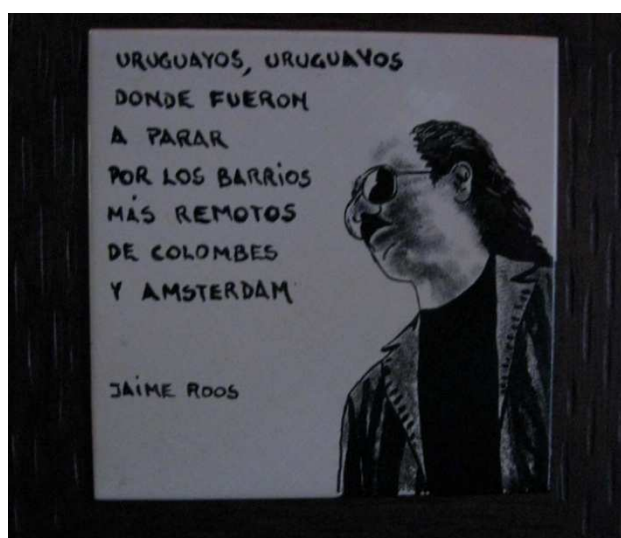 URUGUAYOS, URUGUAYOS
DONDE FUERON
A PARAR
POR LOS BARRIOS
MÁS REMOTOS
DE COLOMBES
Y AMSTERDAM
JAIME ROOS